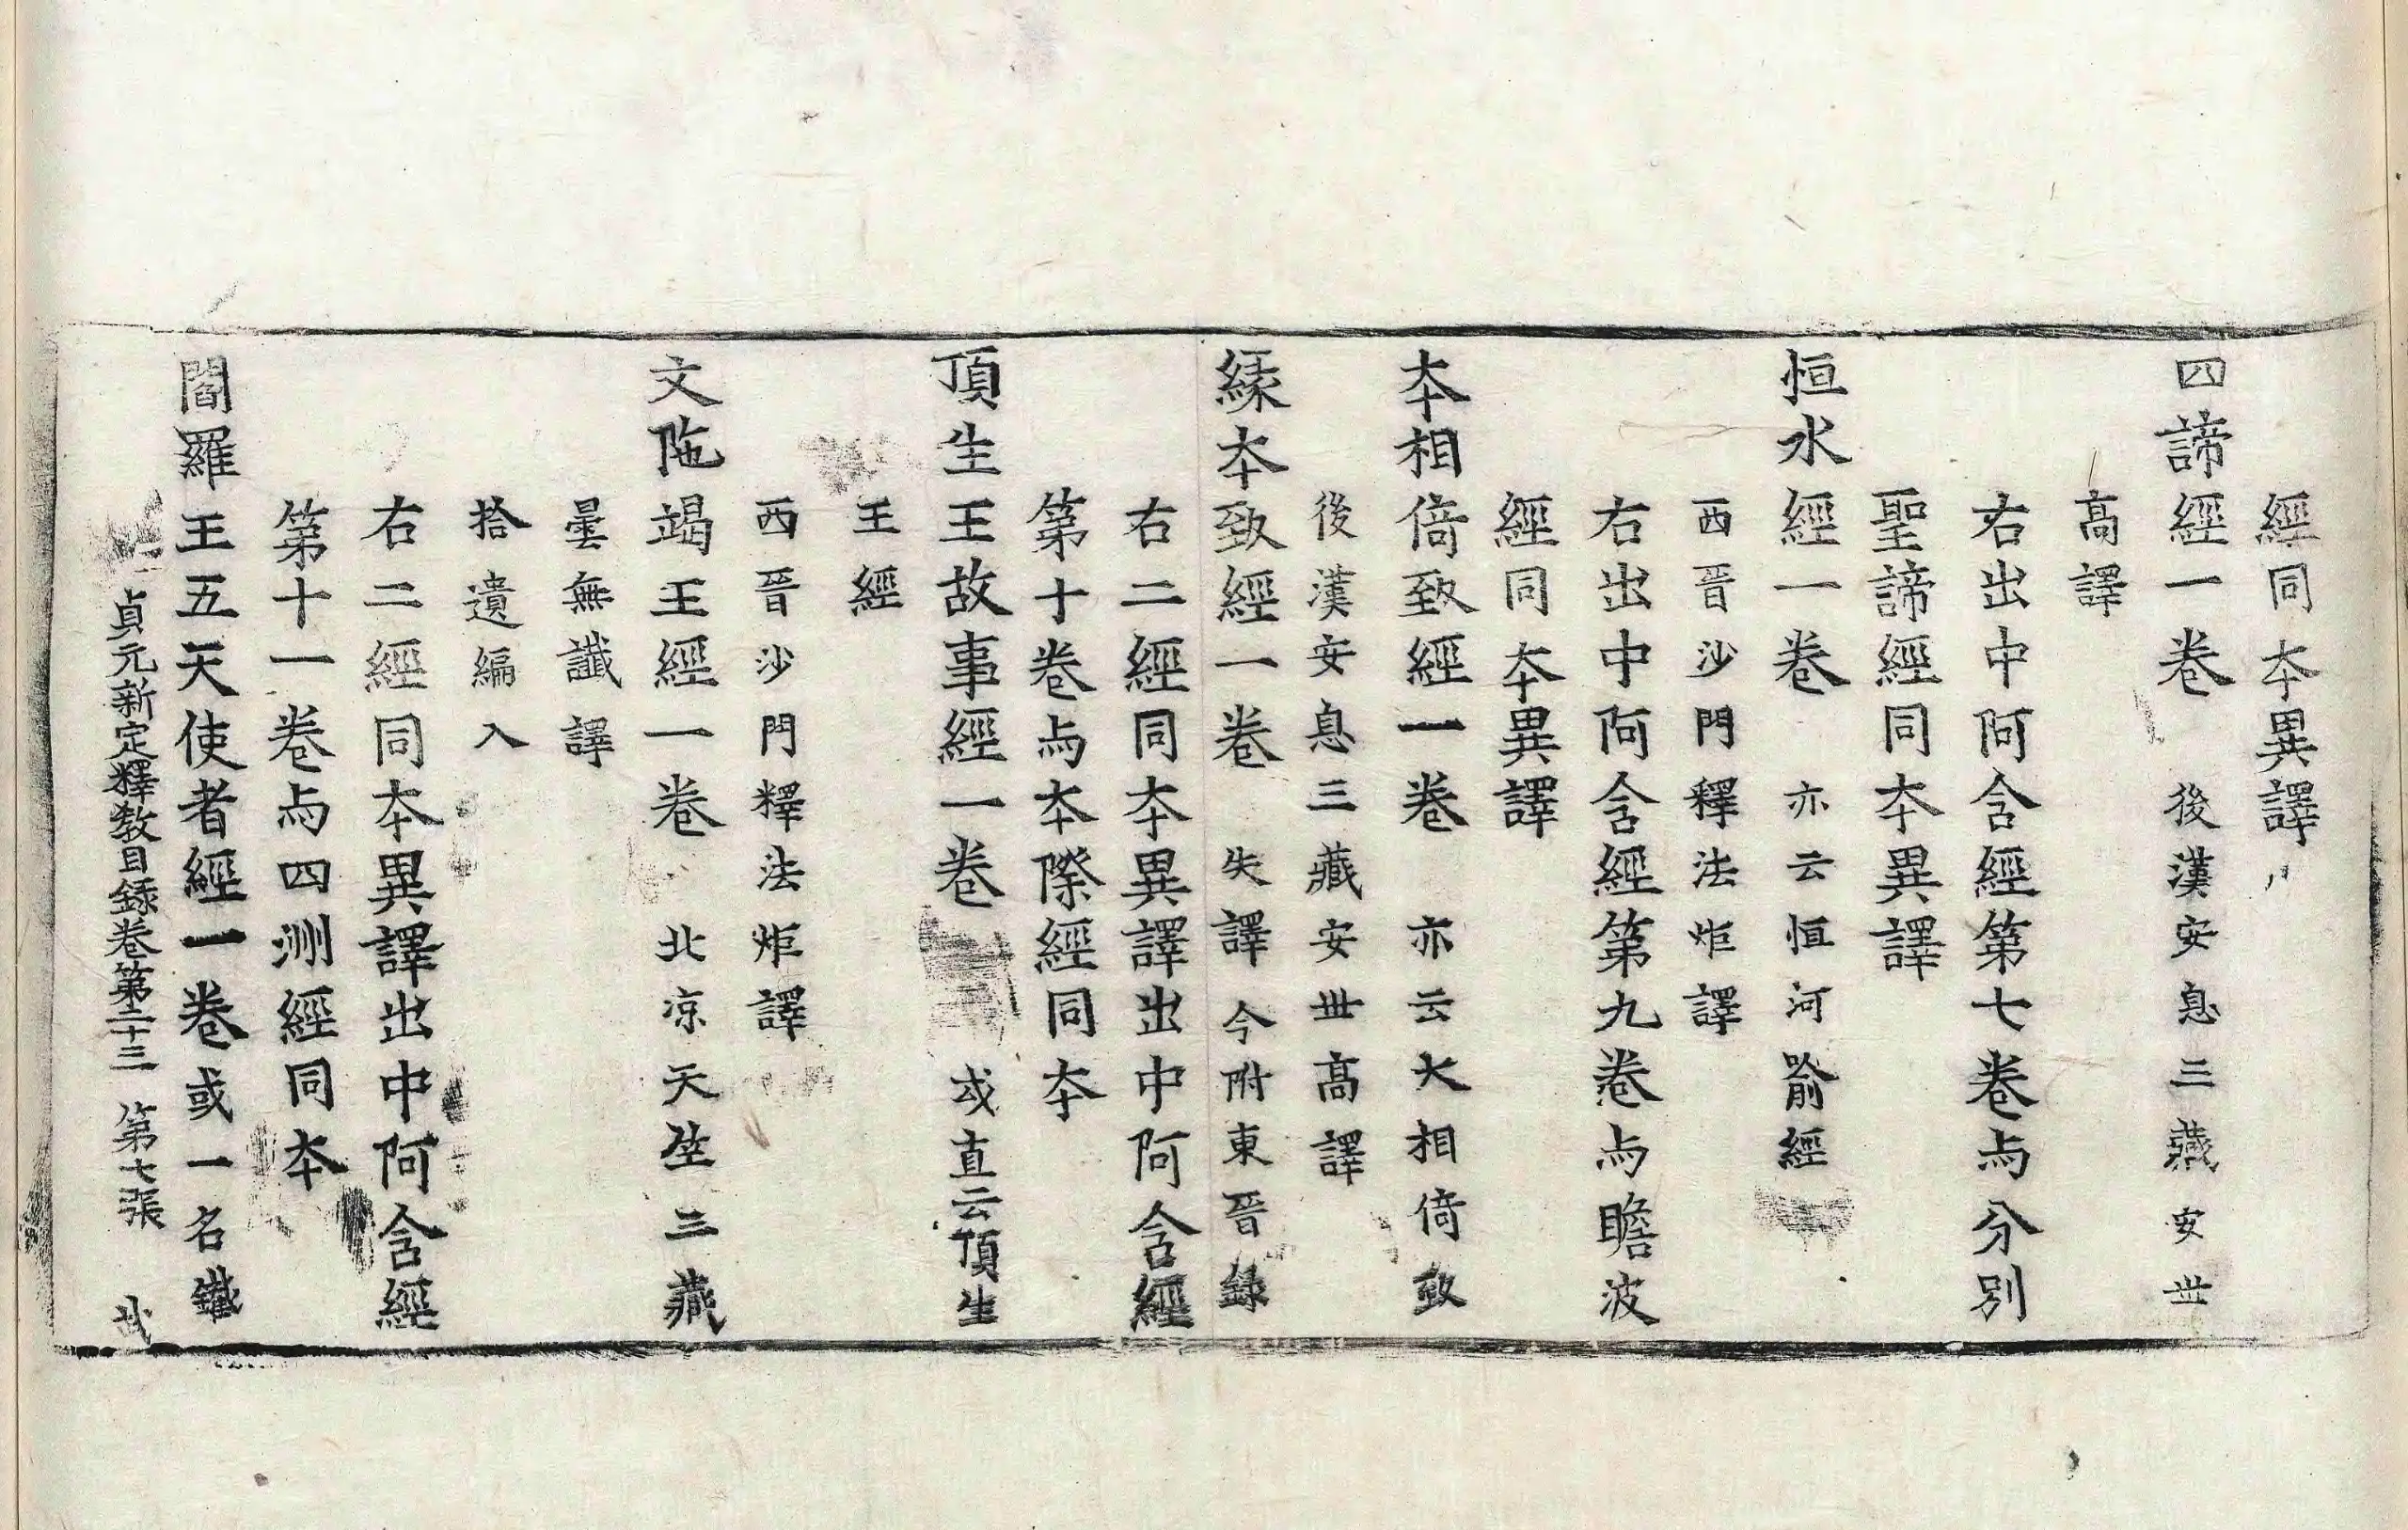 經同本異譯
四諦經一卷 後漢安息三藏安世
高譯
右出中阿含經第七卷与分別
聖諦經同本異譯
恒水經一卷 亦云恒河喻經
西晉沙門釋法炬譯
右出中阿含經第九卷与瞻波
經同本異譯
本相倚致經一卷 亦云大相倚致
後漢安息三藏安世高譯
緣本致經一卷 失譯今附東晉錄
右二經同本異譯出中阿含經
第十卷与本際經同本
頂生王故事經一卷 或直云頂生
王經
西晉沙門釋法炬譯
文陁竭王經一卷 北涼天竺三藏
曇無讖譯
拾遺編入
右二經同本異譯出中阿含經
第十一卷与四洲經同本
閻羅王五天使者經一卷或一名鐵
貞元新定釋教目録卷第二十三 第七張